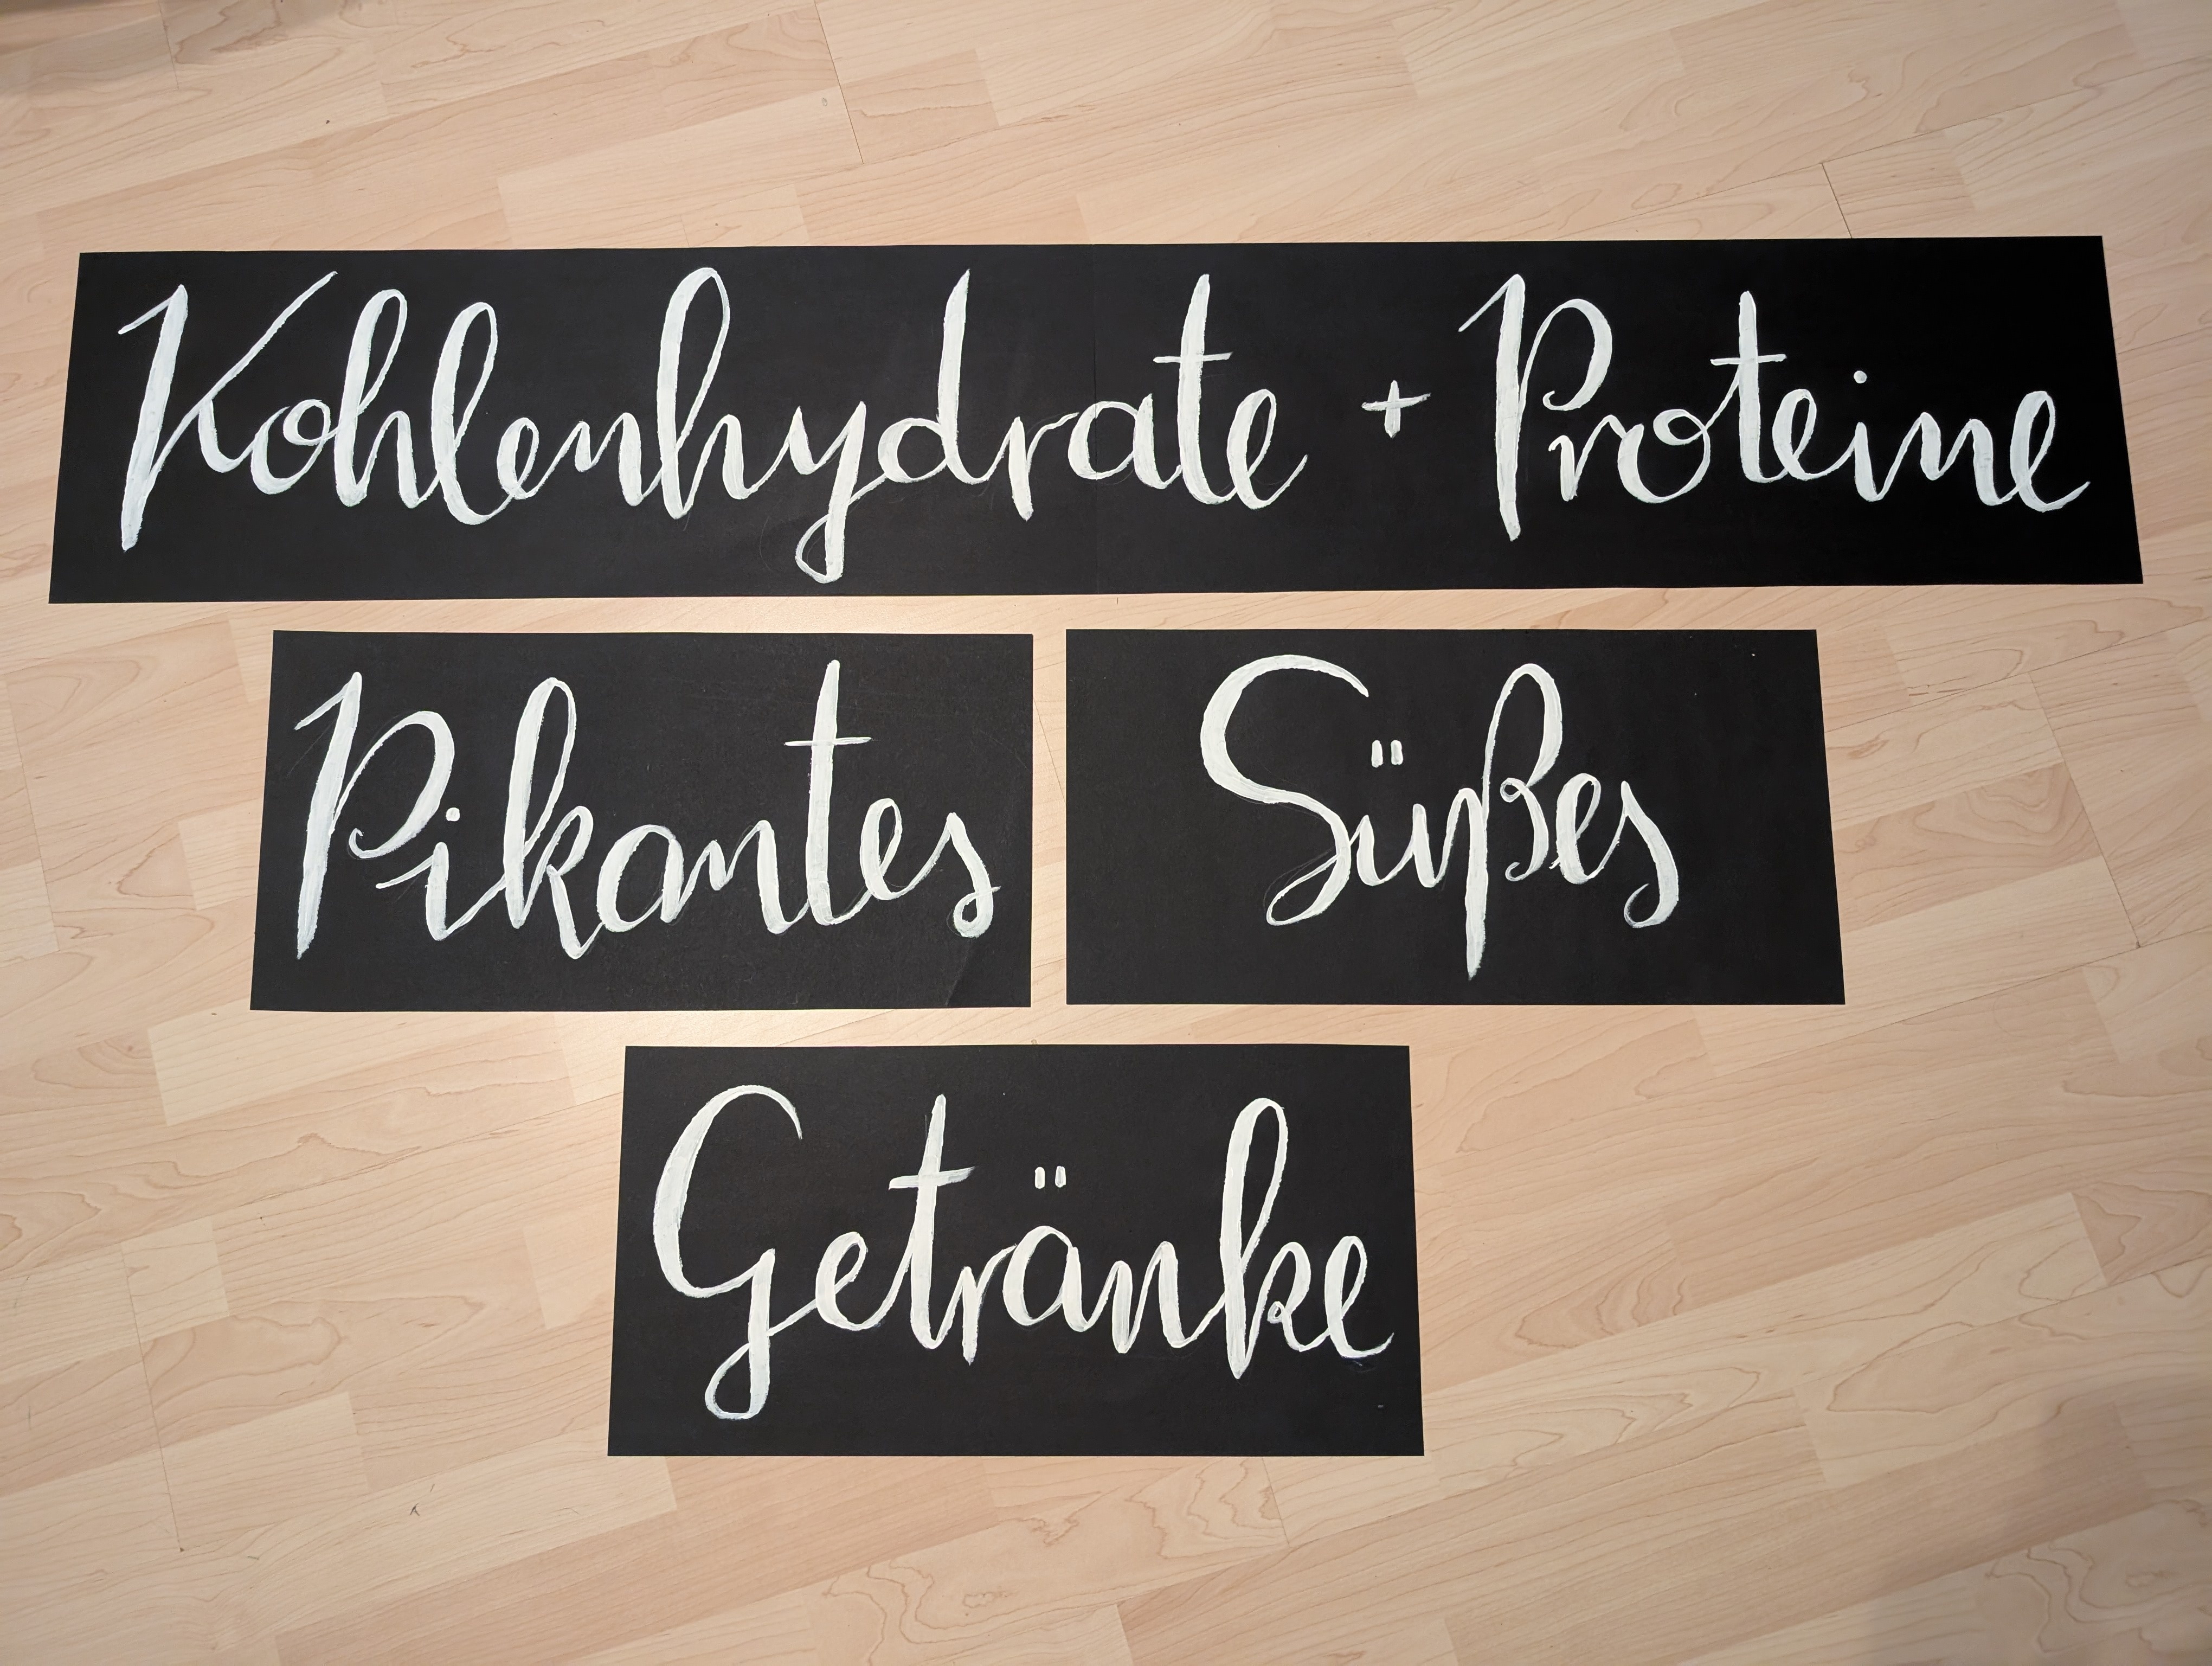 Kohlenhydrate + Proteine
Pikantes
Süßes
Getränke